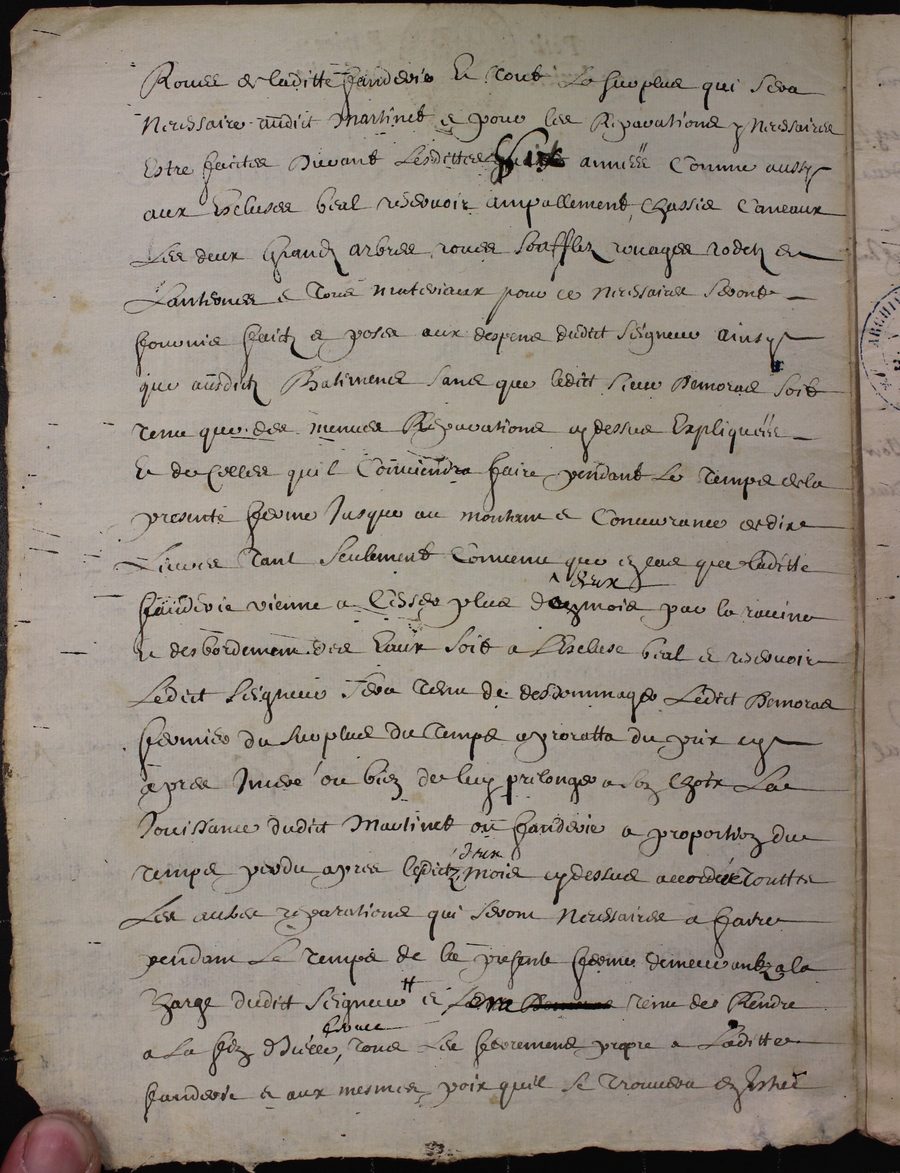 Roues de laditte fanderie Et tout Le surplus qui sera
Necessaire audict Martinet e pour les Reparations y Necessaires
Estre faictes Durant Lesdittes huict années Comme aussy
aux Escluses beal reservoir ampallement, chassis Caneaux
Les deux Grandz arbres roues soufflez rouages rodetz et
Lanternes e tous materiaux pour ce necessaires seront
fournis faictz e poses aux despens dudict seigneur ainsy
que ausdictz Batimens sans que ledict sieur Demoras soit
tenu que des menues Reparations cy dessus Expliquées
Et de Celles quil Conviendra faire pendant Le temps de la
presente ferme Jusque au montant e Concurrance de dix
Livres tant seulement Convenu que en cas que laditte
fanderie vienne a Cesser plus de deux mois par la ravine
Et desbordement des Eaux soit a Lescluse beal e reservoir
Ledict seigneur sera tenu de desdommager Ledict Demoras
fermier du surplus du temps a proratta du prix cy
apres Inseré ou bien de luy prolonger a son choix La
Jouissance dudict Martinet ou fanderie a proportion du
temps perdu apres lesdictz deux mois cy dessus accordés touttes
Les autres reparations qui seront necessaires a faire
pendant Le temps de la presente ferme demeurantz a la
charge dudict seigneur et sera tenu de Rendre
a La fin dicelle ferme, tous Les ferrements propre a Laditte
fanderie e aux mesmes poix quil se trouvera